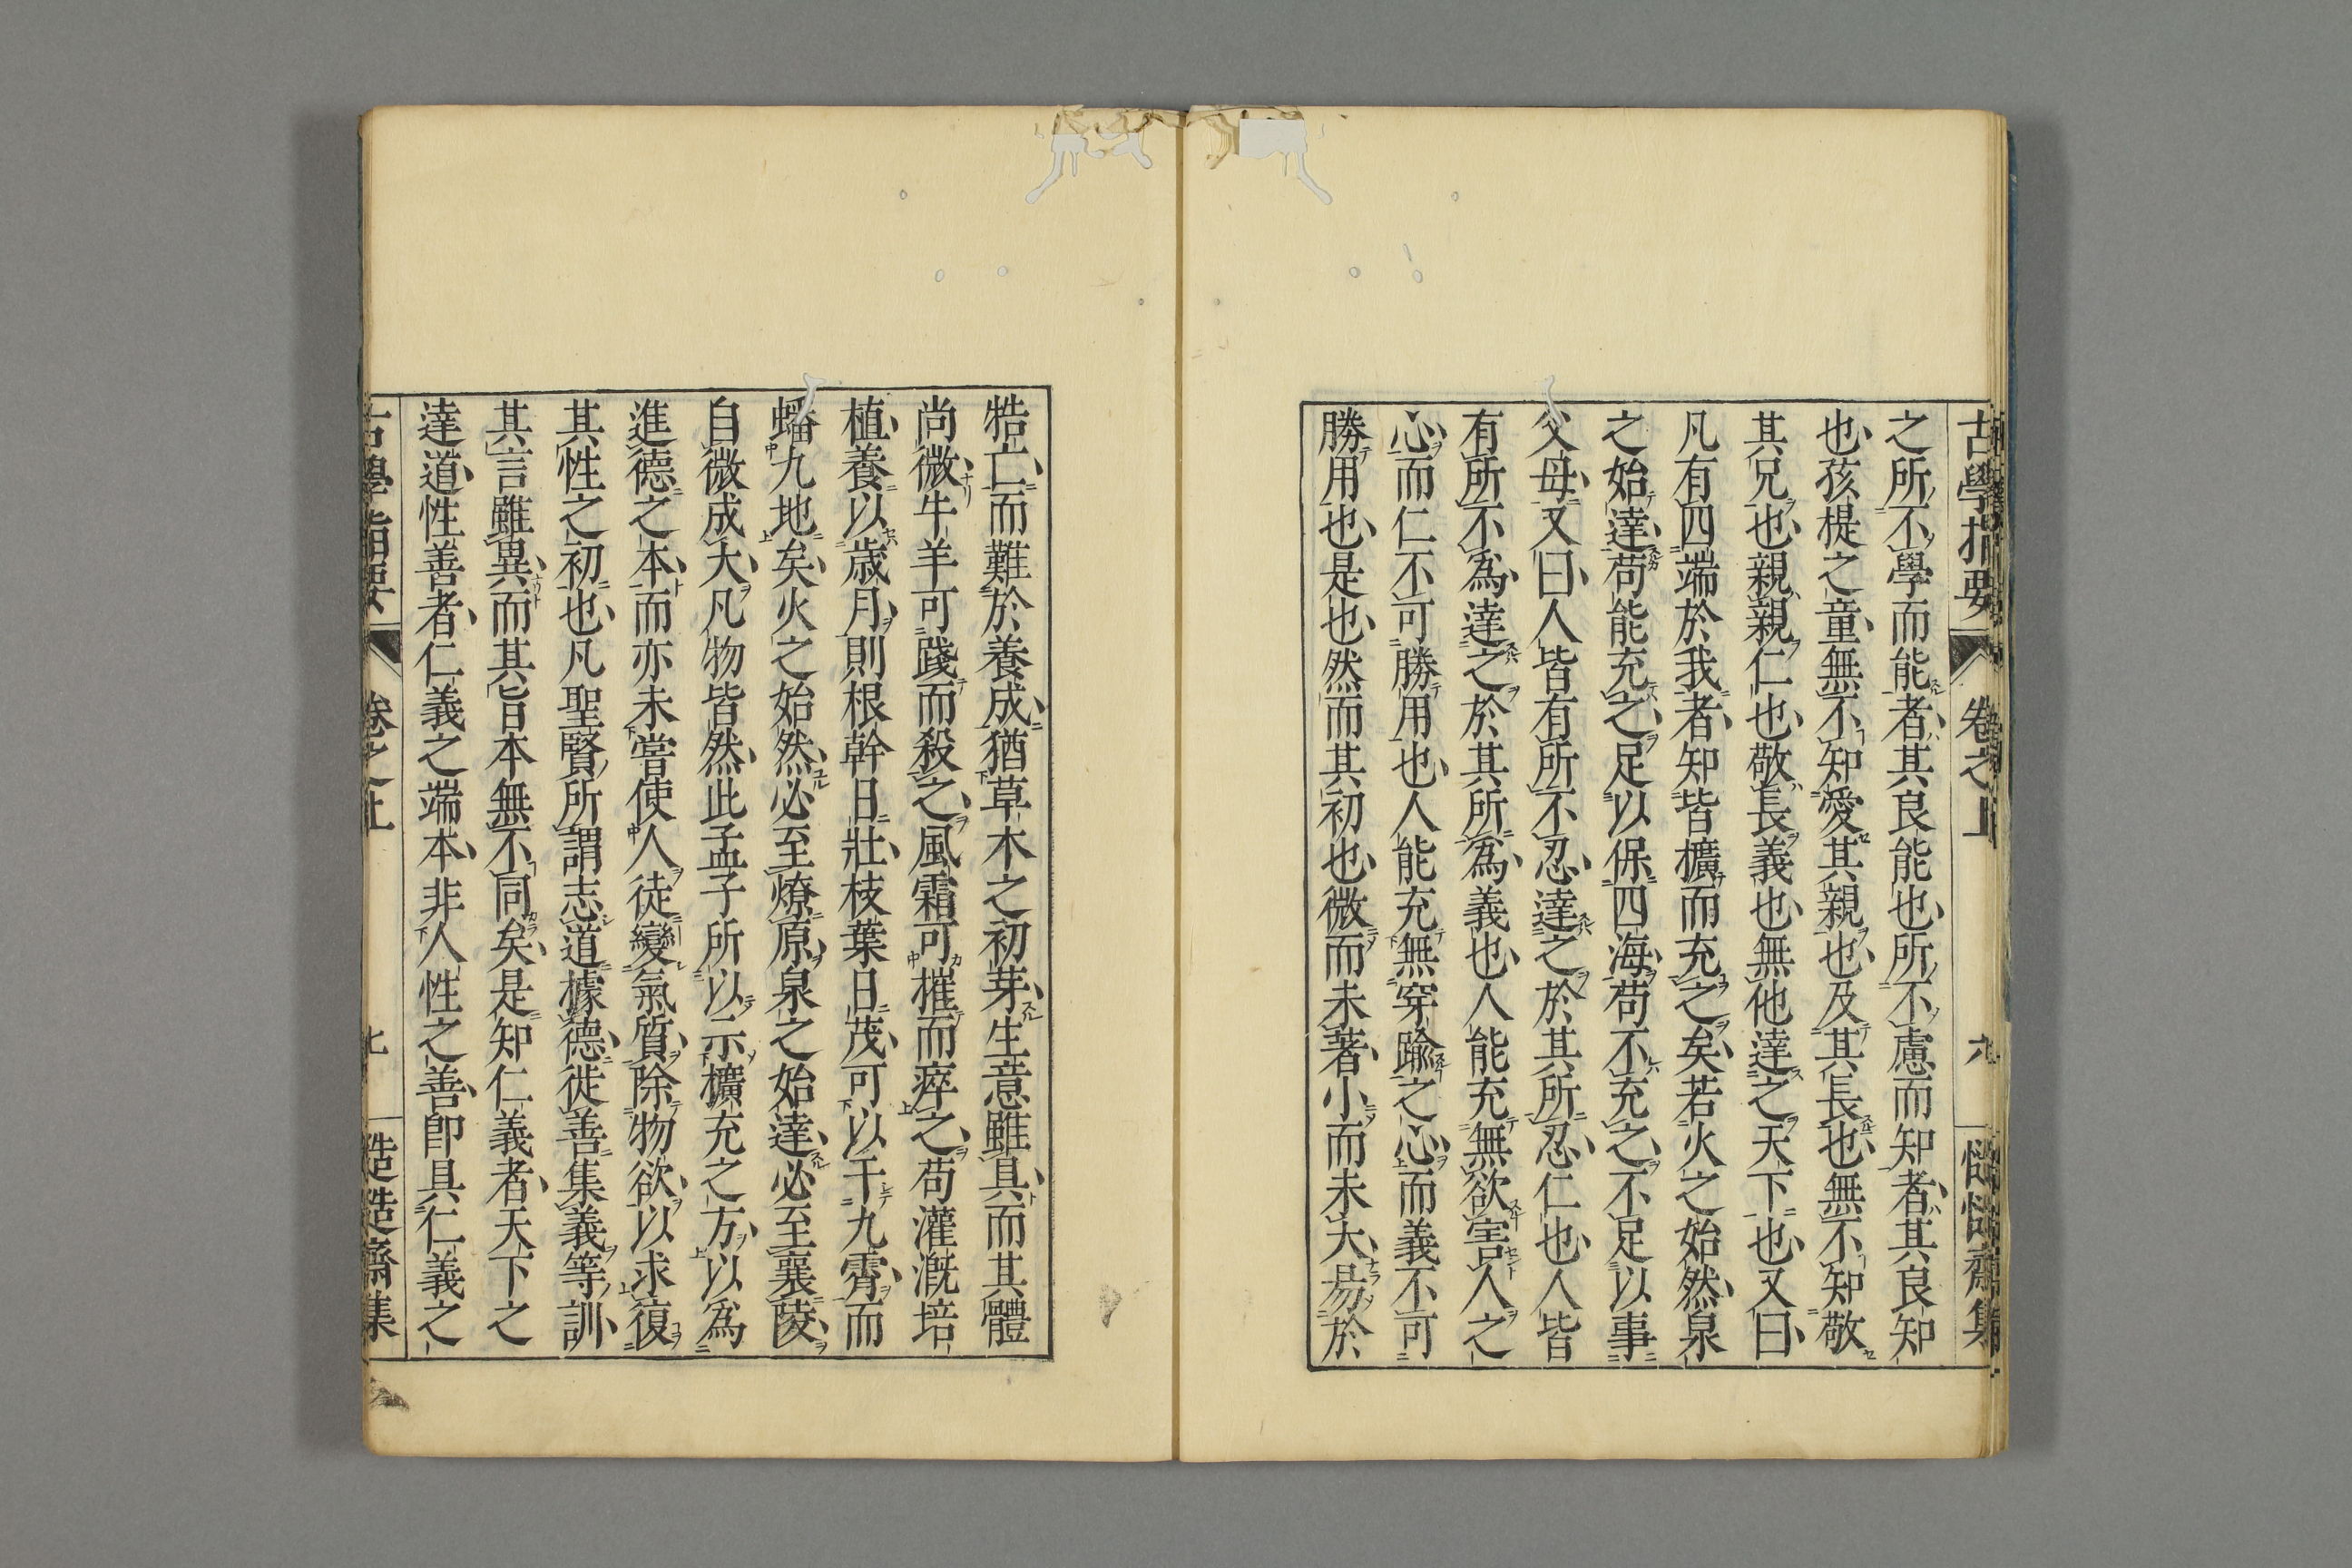 古學指要 卷之上 六 慥慥齋集
之所不學而能者其良能也所不慮而知者其良知
也孩提之童無不知愛其親也及其長也無不知敬
其兄也親親仁也敬長義也無他達之天下也又曰
凡有四端於我者知皆擴而充之矣若火之始然泉
之始達苟能充之足以保四海苟不充之不足以事
父母又曰人皆有所不忍達之於其所忍仁也人皆
有所不爲達之於其所爲義也人能充無欲害人之
心而仁不可勝用也人能充無穿踰之心而義不可
勝用也是也然而其初也微而未著小而未大易於
牿亡而難於養成猶草木之初芽生意雖具而其體
尚微牛羊可踐而殺之風霜可摧而瘁之苟灌漑培
植養以歲月則根幹日壯枝葉日茂可以干九霄而
蟠九地矣火之始然必至燎原泉之始達必至襄陵
自微成大凡物皆然此孟子所以示擴充之方以爲
進德之本而亦未嘗使人徒變氣質除物欲以求復
其性之初也凡聖賢所謂志道據德徙善集義等訓
其言雖異而其旨本無不同矣是知仁義者天下之
達道性善者仁義之端本非人性之善卽具仁義之
古學指要 卷之上 七 慥慥齋集